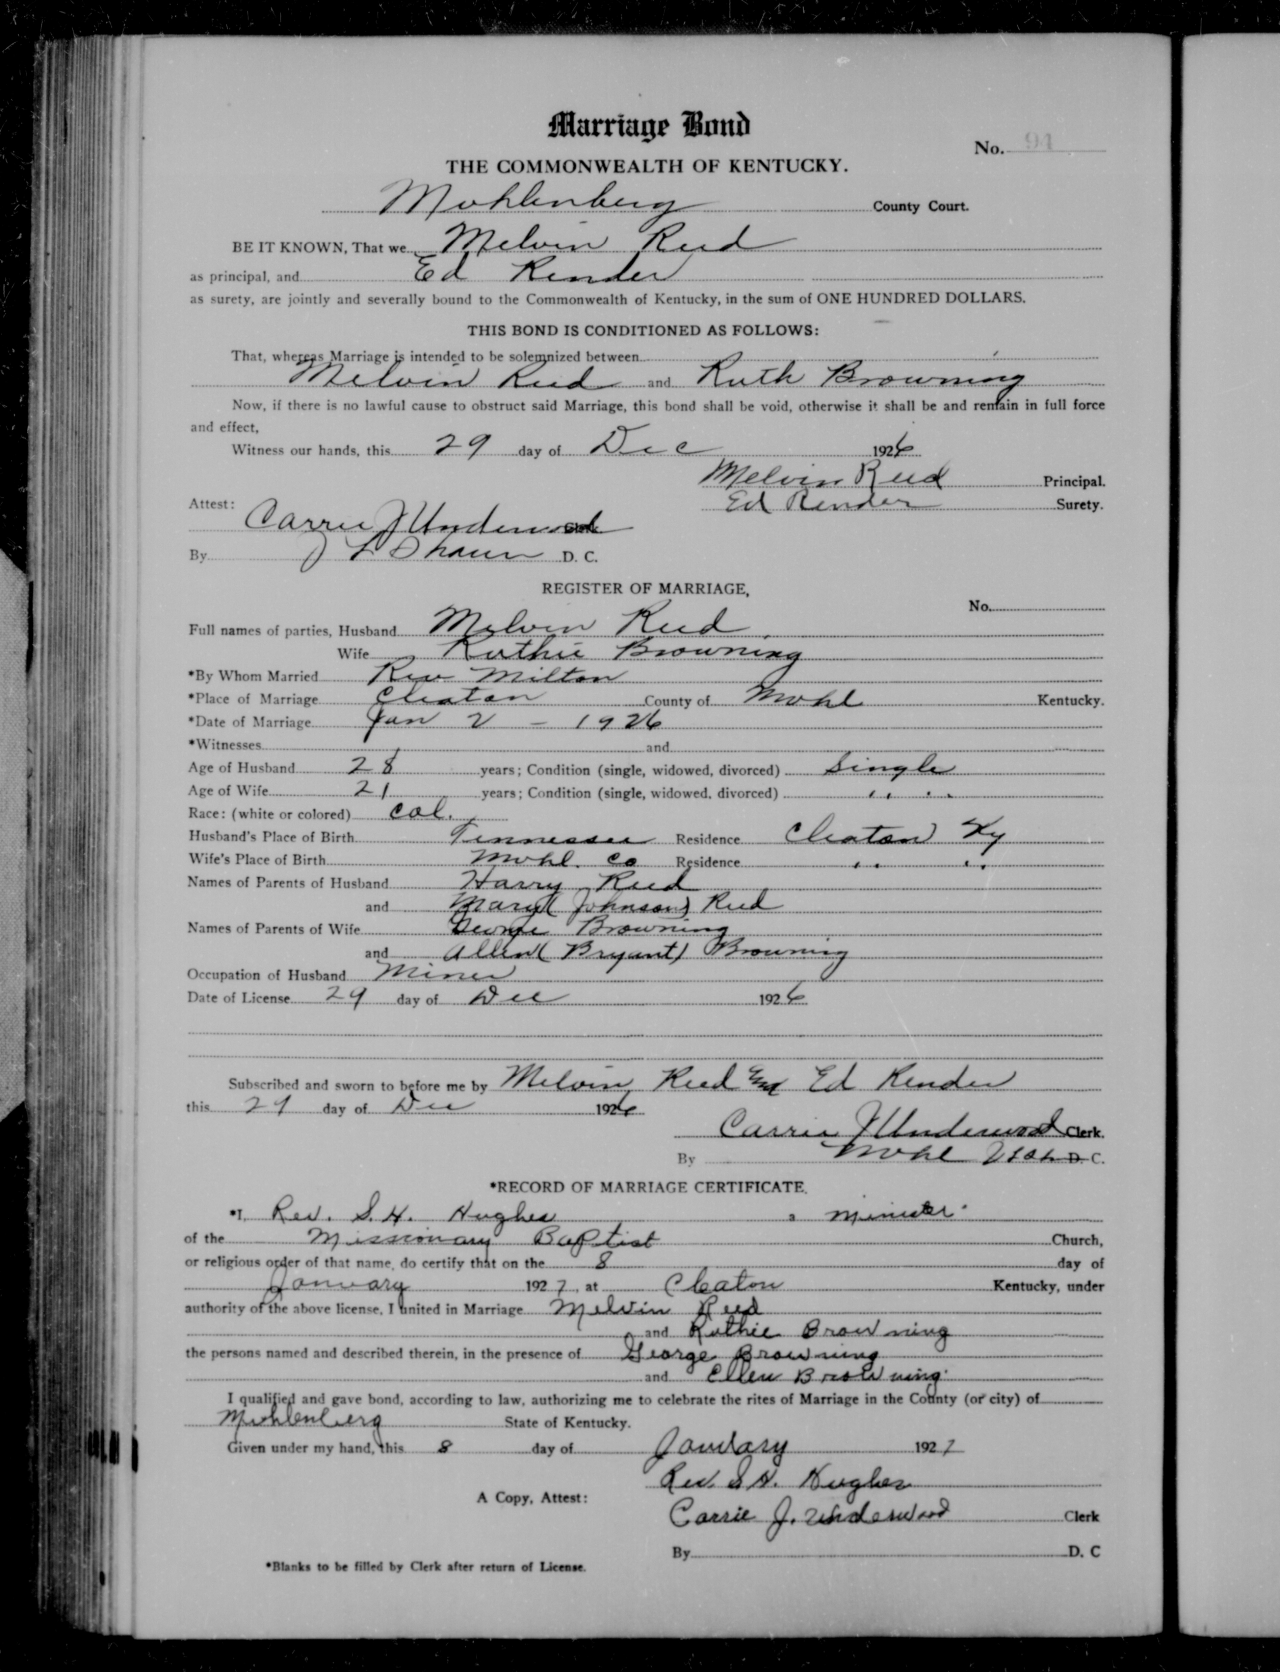 Marriage Bond
No. 91
THE COMMONWEALTH OF KENTUCKY.
Muhlenberg County Court.
BE IT KNOWN, That we Melvin Reed
as principal, and Ed Render
as surety, are jointly and severally bound to the Commonwealth of Kentucky, in the sum of ONE HUNDRED DOLLARS.
THIS BOND IS CONDITIONED AS FOLLOWS:
That, whereas Marriage is intended to be solemnized between
Melvin Reed and Ruth Browning
Now, if there is no lawful cause to obstruct said Marriage, this bond shall be void, otherwise it shall be and remain in full force
and effect,
Witness our hands, this 29 day of Dec 1926
Melvin Reed Principal.
Ed Render Surety.
Attest:
Carrie J Underwood Clerk
By J L D. C.
REGISTER OF MARRIAGE,
No.
Full names of parties, Husband Melvin Reed
Wife Ruthie Browning
*By Whom Married Rev Milton
*Place of Marriage Cleaton County of Muhl Kentucky.
*Date of Marriage Jan 2 - 1926
*Witnesses and
Age of Husband 28 years; Condition (single, widowed, divorced) Single
Age of Wife 21 years; Condition (single, widowed, divorced) " "
Race: (white or colored) Col.
Husband's Place of Birth Tennessee Residence Cleaton Ky
Wife's Place of Birth Muhl. Co Residence " "
Names of Parents of Husband Harry Reed
and Mary (Johnson) Reed
Names of Parents of Wife George Browning
and Allen (Bryant) Browning
Occupation of Husband Miner
Date of License 29 day of Dec 1926
Subscribed and sworn to before me by Melvin Reed and Ed Render
this 29 day of Dec 1926
Carrie J Underwood Clerk.
By Muhl D. C.
*RECORD OF MARRIAGE CERTIFICATE.
*I, Rev. S. H. Hughes a minister
of the Missionary Baptist Church,
or religious order of that name, do certify that on the 8 day of
January 1927, at Cleaton Kentucky, under
authority of the above license, I united in Marriage Melvin Reed
and Ruthie Browning
the persons named and described therein, in the presence of George Browning
and Ellen Browning
I qualified and gave bond, according to law, authorizing me to celebrate the rites of Marriage in the County (or city) of
Muhlenberg State of Kentucky.
Given under my hand, this 8 day of January 1927
Rev. S. H. Hughes
A Copy, Attest:
Carrie J. Underwood Clerk
By D. C
*Blanks to be filled by Clerk after return of License.